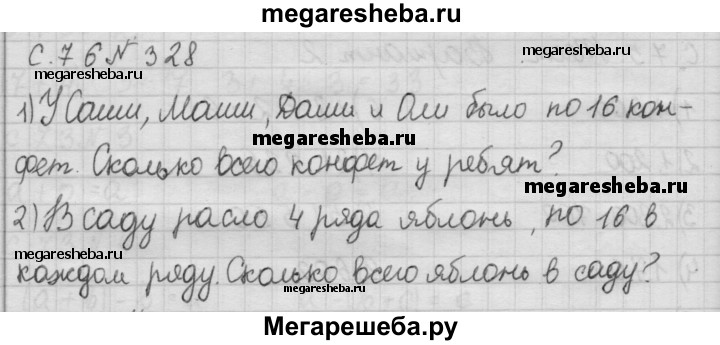 megaresheba.ru
С. 76 N 328
megaresheba.ru
megaresheba.ru
1) У Саши, Маши, Даши и Оли было по 16 кон-
megaresheba.ru
фет. Сколько всего конфет у ребят?
megaresheba.ru
2) В саду расло 4 ряда яблонь, по 16 в
megaresheba.ru
каждом ряду. Сколько всего яблонь в саду?
megaresheba.ru
Мегарешеба.ру